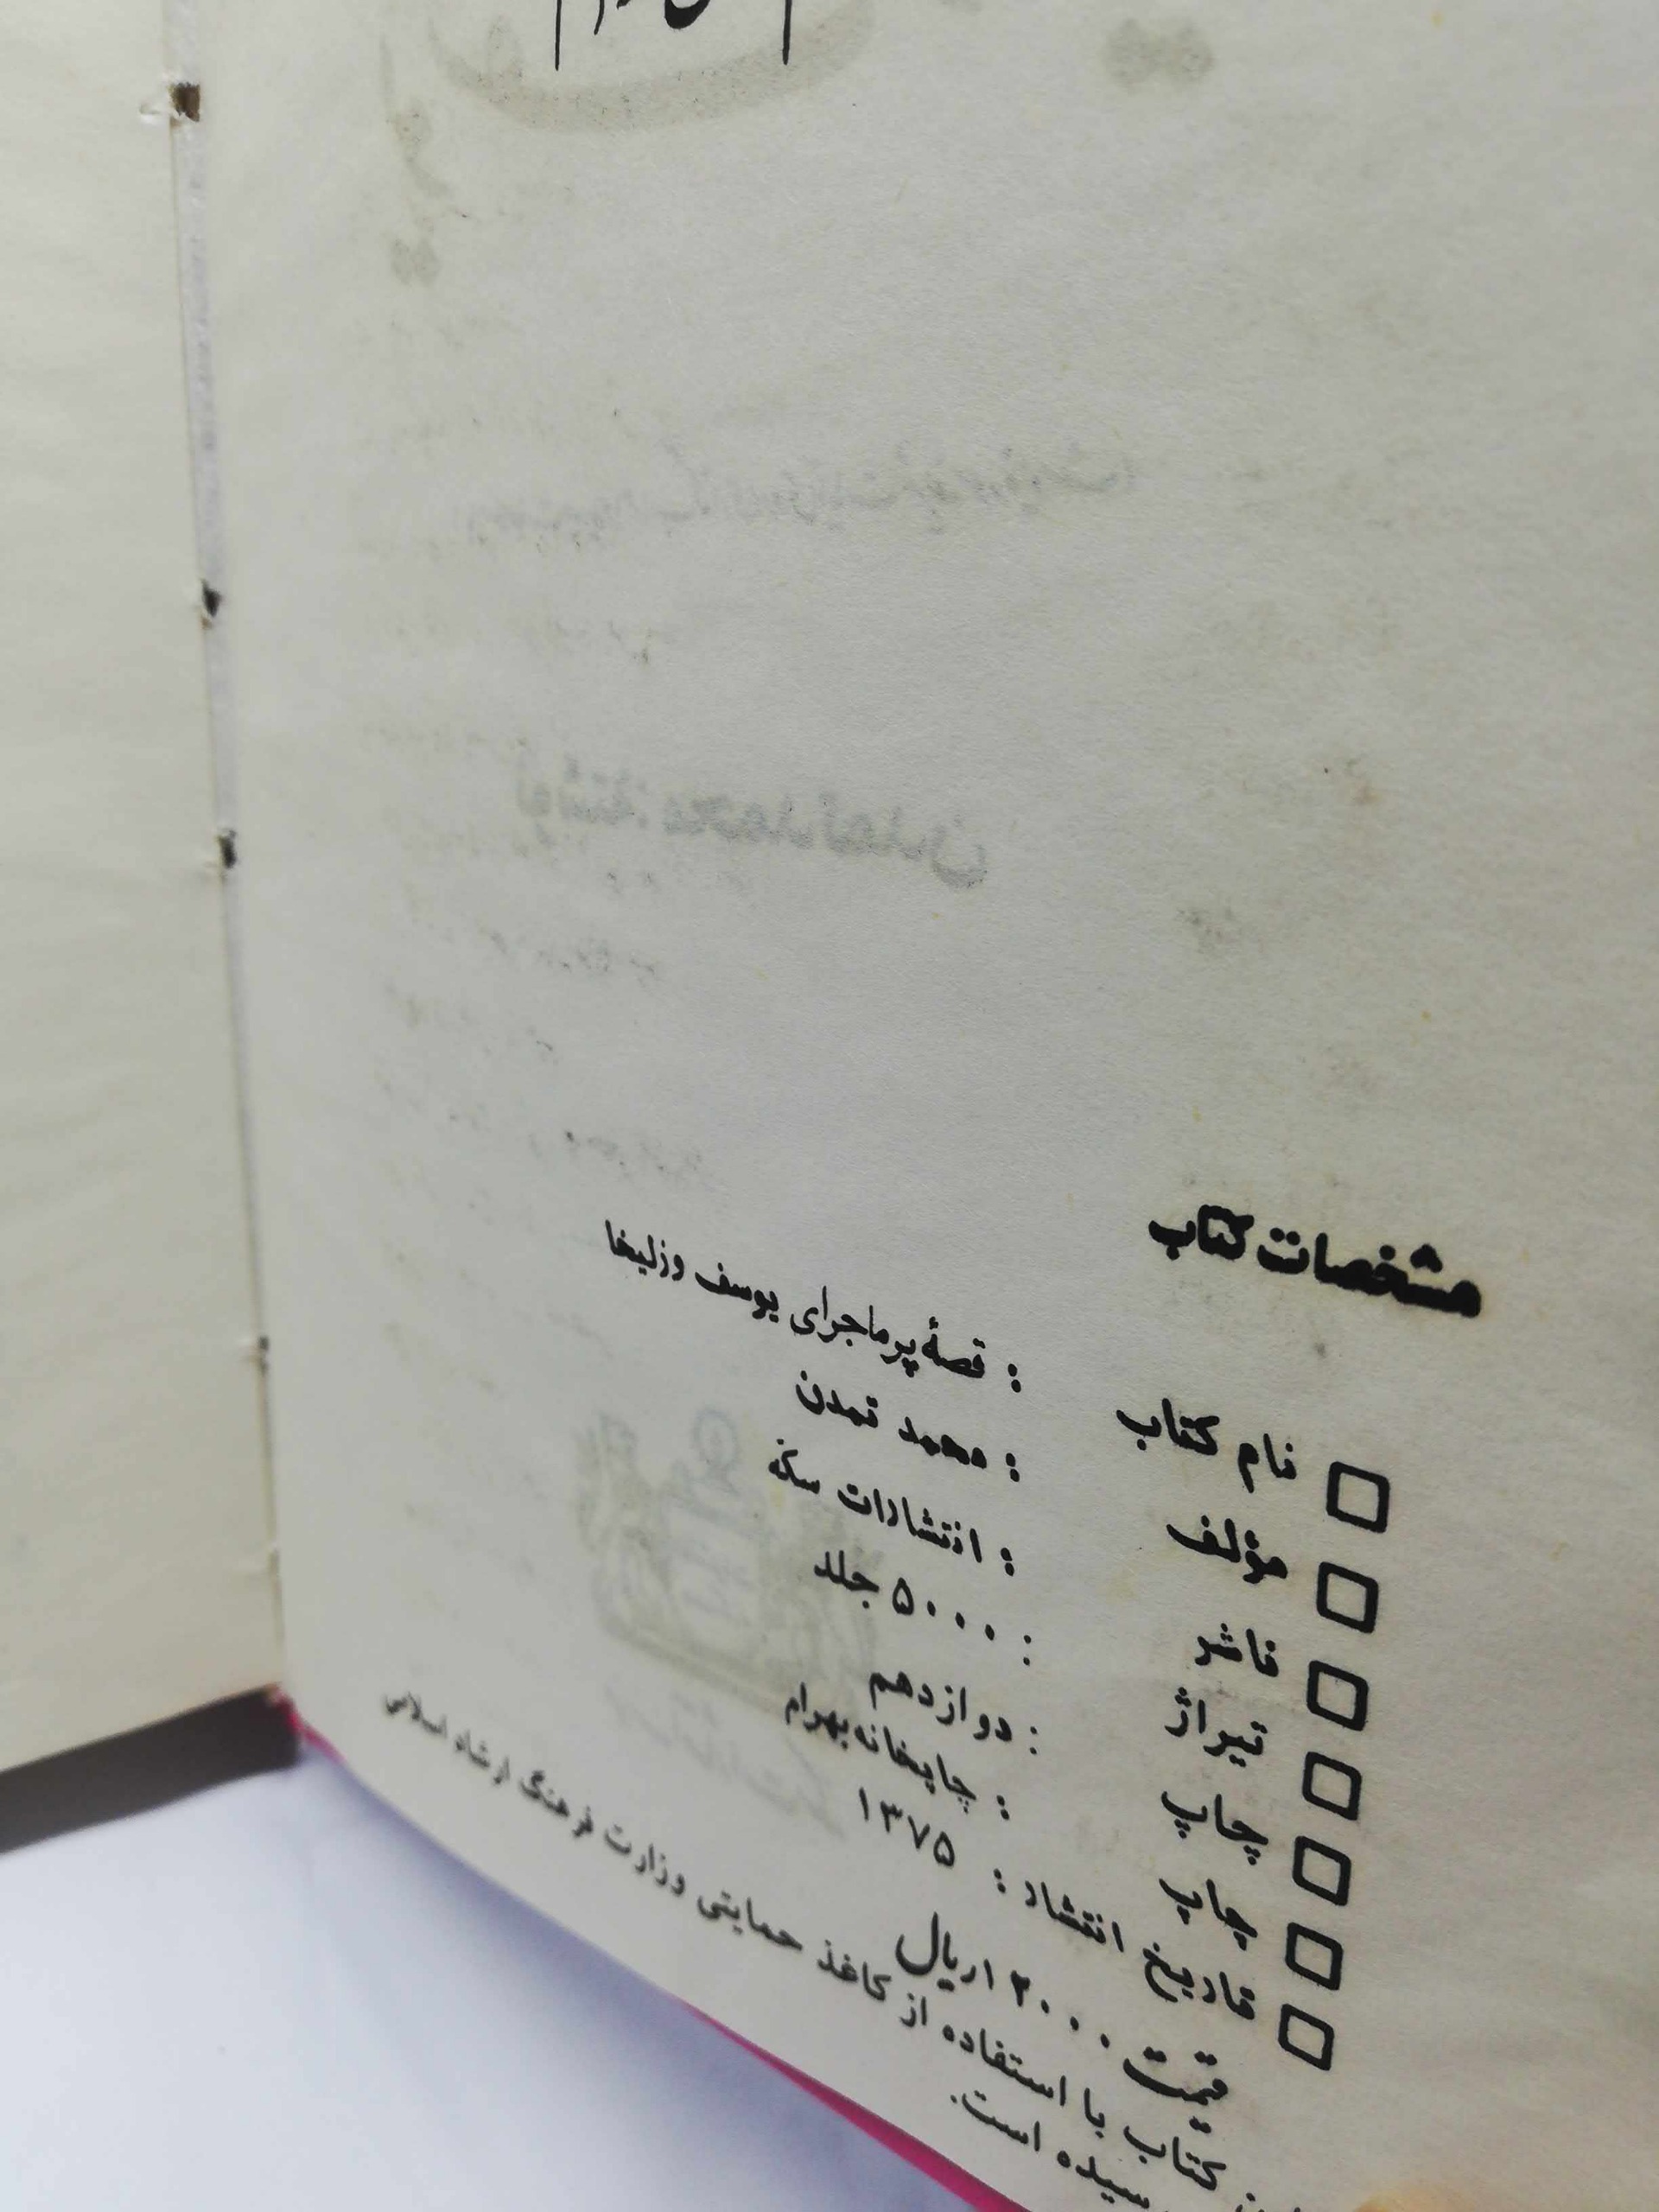 مشخصات کتاب
نام کتاب : قصهٔ پرماجرای یوسف وزلیخا
مؤلف : محمد تمدن
ناشر : انتشارات سکه
تیراژ : ۵۰۰۰ جلد
چاپ : دوازدهم
چاپ : چاپخانه بهرام
تاریخ انتشار : ۱۳۷۵
قیمت ۱۲۰۰۰ریال
کتاب با استفاده از کاغذ حمایتی وزارت فرهنگ ارشاد اسلامی
است.
نوشتهٔ: محمد تمدن